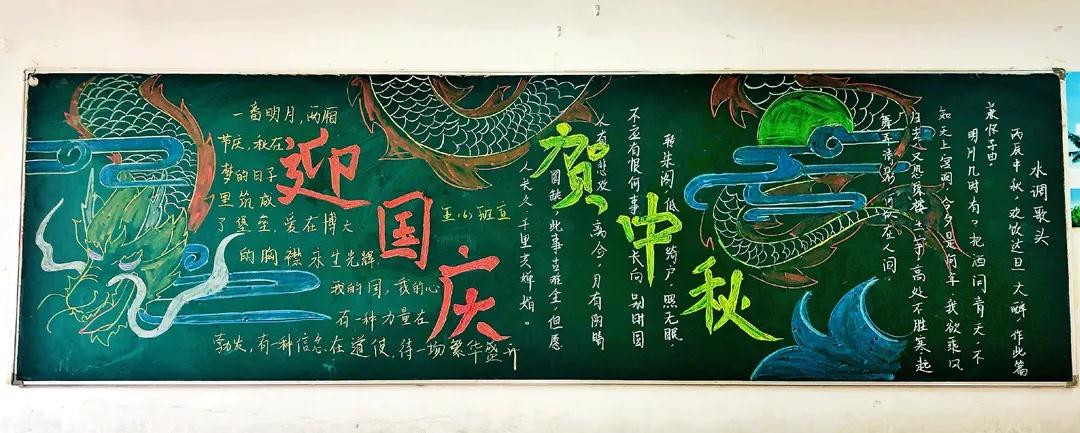 迎国庆
贺中秋
一番明月,两厢
节庆,秋在
梦的日子
里筑成
了堡垒,爱在博大
的胸襟永生光辉
我的国,我的心
有一种力量在
勃发,有一种信念在道使,待一场繁华盛开
宣
水调歌头
丙辰中秋,欢饮达旦,大醉,作此篇
兼怀子由
明月几时有?把酒问青天,不
知天上宫阙,今夕是何年 我欲乘风
归去 又恐琼楼玉宇 高处不胜寒 起
舞弄清影 何似在人间
转朱阁 低绮户,照无眠,
不应有恨何事长向别时圆
人有悲欢离合,月有阴晴
圆缺,此事古难全但愿
人长久,千里共婵娟。